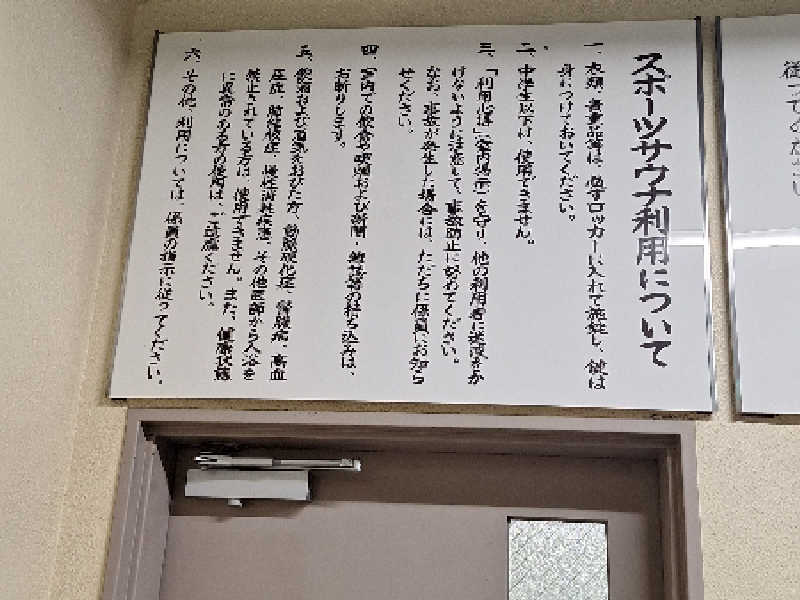 スポーツサウナ利用について
一、衣類、貴重品等は、必ずロッカーに入れて施錠し、鍵は
身につけておいてください。
二、中学生以下は、使用できません。
三、「利用心得」(室内掲示)を守り、他の利用者に迷惑をか
けないように注意して、事故防止に努めてください。
なお、事故が発生した場合には、ただちに係員にお知ら
せください。
四、室内での飲食や喫煙および新聞・雑誌等の持ち込みは、
お断りします。
五、飲酒および酒気をおびた方、動脈硬化症、腎臓病、高血
圧症、
慢性消耗疾患、その他医師から入浴を
禁止されている方は、使用できません。また、健康状態
に異常のある方の使用は、ご遠慮ください。
六、その他、利用については、係員の指示に従ってください。
従ってください